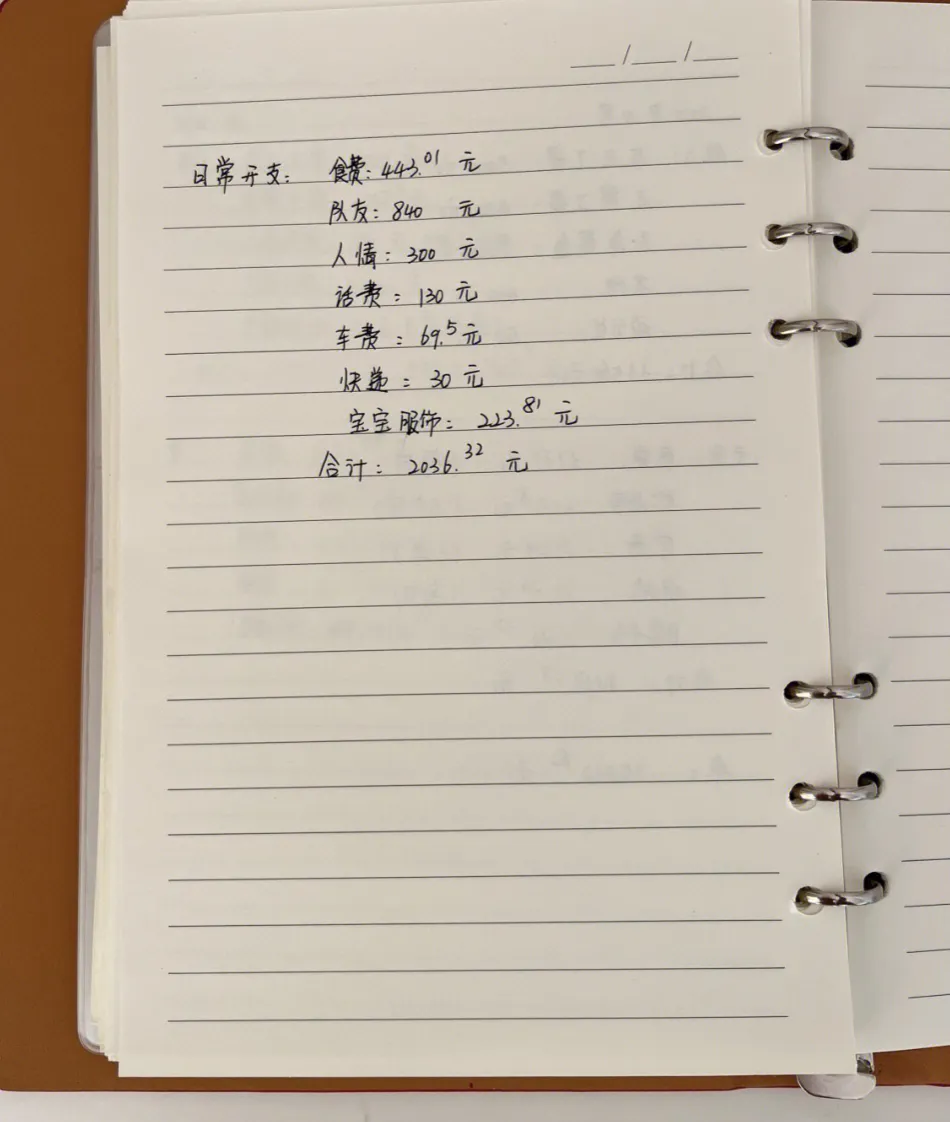 ___/___/___
日常开支： 食费：443.01 元
队友：840 元
人情：300 元
话费：130 元
车费：69.5元
快递：30 元
宝宝服饰：223.81 元
合计：2036.32 元